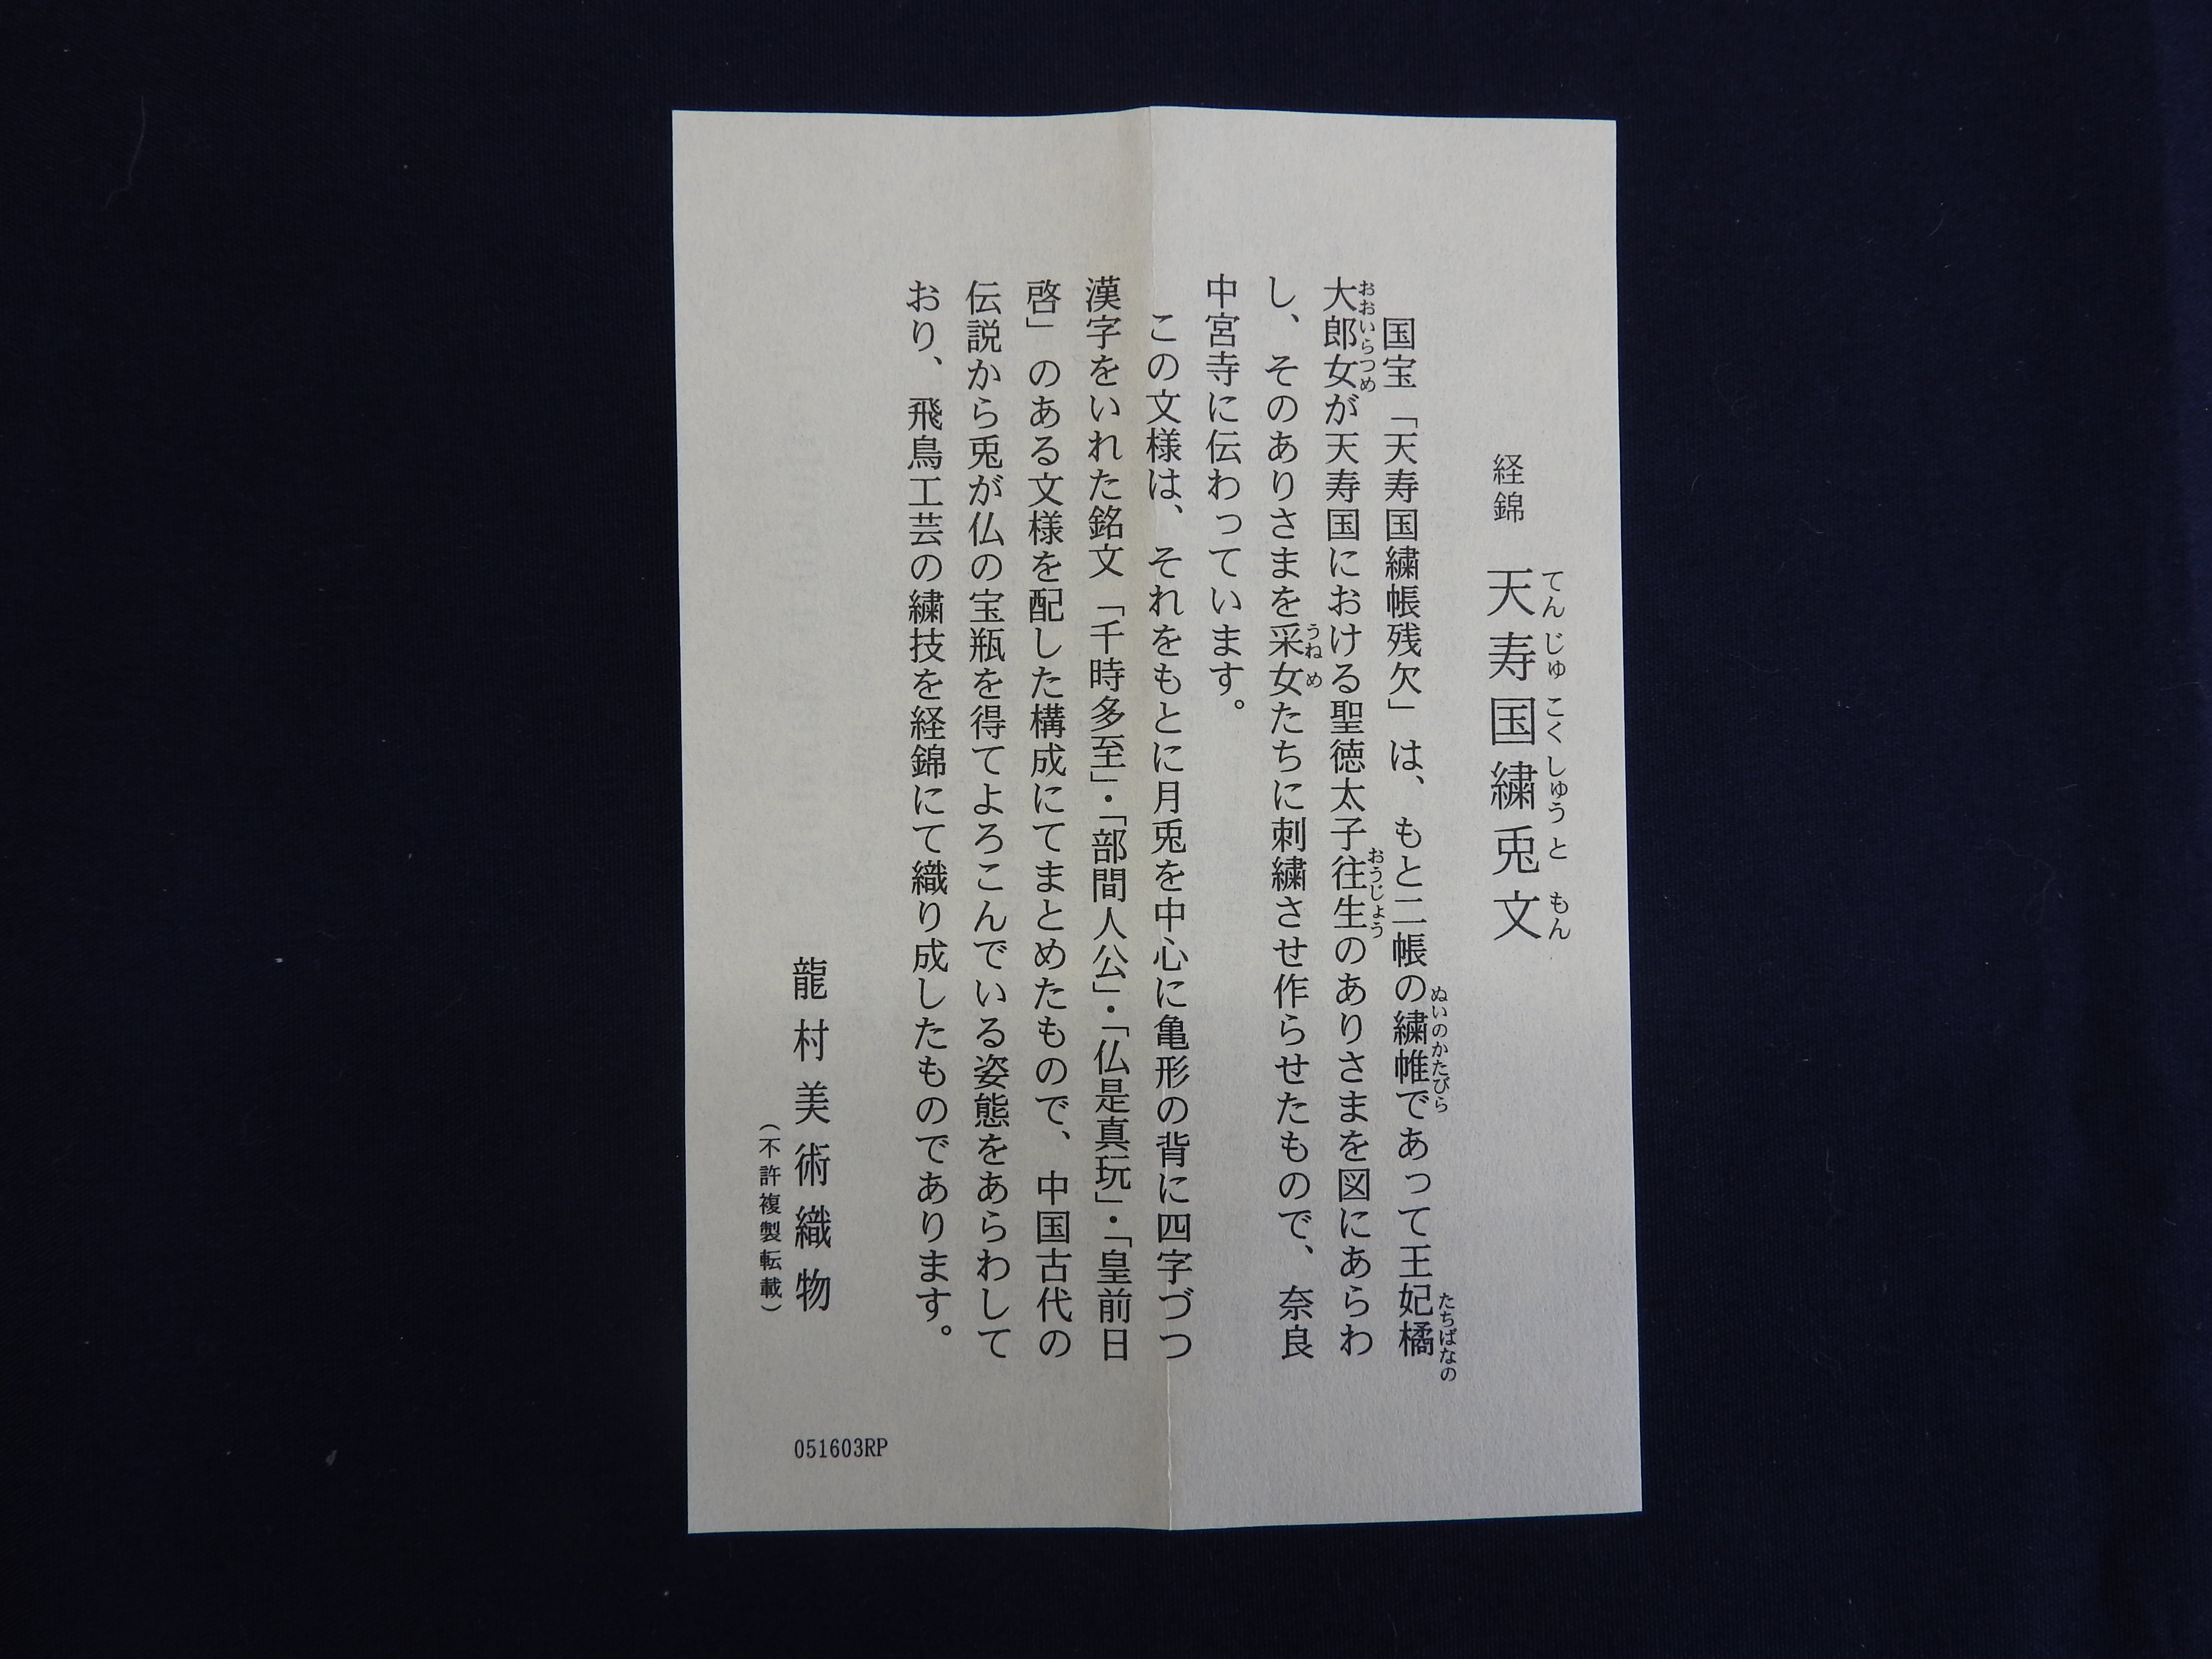 経錦　天寿国繍兎文
てんじゅこくしゅうともん
国宝「天寿国繍帳残欠」は、もと二帳の繍帷であって王妃橘
ぬいのかたびら
たちばなの
大郎女が天寿国における聖徳太子往生のありさまを図にあらわ
おおいらつめ
おうじょう
し、そのありさまを采女たちに刺繍させ作らせたもので、奈良
うねめ
中宮寺に伝わっています。
この文様は、それをもとに月兎を中心に亀形の背に四字づつ
漢字をいれた銘文「千時多至」・「部間人公」・「仏是真玩」・「皇前日
啓」のある文様を配した構成にてまとめたもので、中国古代の
伝説から兎が仏の宝瓶を得てよろこんでいる姿態をあらわして
おり、飛鳥工芸の繍技を経錦にて織り成したものであります。
龍村美術織物
（不許複製転載）
051603RP